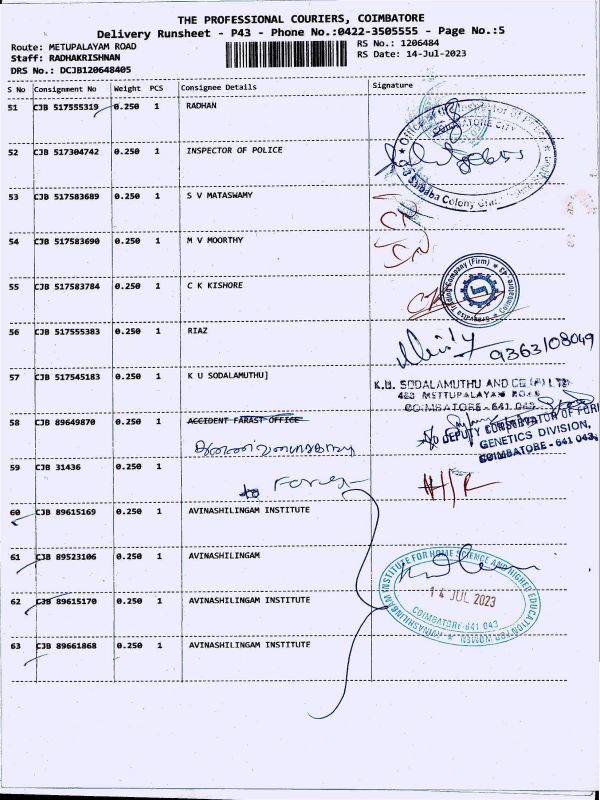 THE PROFESSIONAL COURIERS, COIMBATORE
Delivery Runsheet - P43 - Phone No.:0422-3505555 - Page No.:5
Route: METUPALAYAM ROAD
RS No.: 1206484
Staff: RADHAKRISHNAN
RS Date: 14-Jul-2023
DRS No.: DCJB120648405
S No Consignment No Weight PCS Consignee Details Signature
51 CJB 517555319 0.250 1 RADHAN
COIMBATORE CITY
52 CJB 517304742 0.250 1 INSPECTOR OF POLICE
Saibaba Colony
53 CJB 517583689 0.250 1 S V MATASWAMY
54 CJB 517583690 0.250 1 M V MOORTHY
55 CJB 517583784 0.250 1 C K KISHORE
Trading Company (Firm)
56 CJB 517555383 0.250 1 RIAZ
9363108049
57 CJB 517545183 0.250 1 K U SODALAMUTHU]
K.U. SODALAMUTHU AND CO (P) LTD
METTUPALAYAM ROAD
COIMBATORE - 641 043
58 CJB 89649870 0.250 1 ACCIDENT FARAST OFFICE
DEPUTY CONSERVATOR OF FOR
GENETICS DIVISION,
COIMBATORE - 641 043
59 CJB 31436 0.250 1
60 CJB 89615169 0.250 1 AVINASHILINGAM INSTITUTE
61 CJB 89523106 0.250 1 AVINASHILINGAM
AVINASHILINGAM INSTITUTE FOR HOME SCIENCE AND HIGHER EDUCATION FOR WOMEN
62 CJB 89615170 0.250 1 AVINASHILINGAM INSTITUTE
14 JUL 2023
COIMBATORE-641 043
63 CJB 89661868 0.250 1 AVINASHILINGAM INSTITUTE